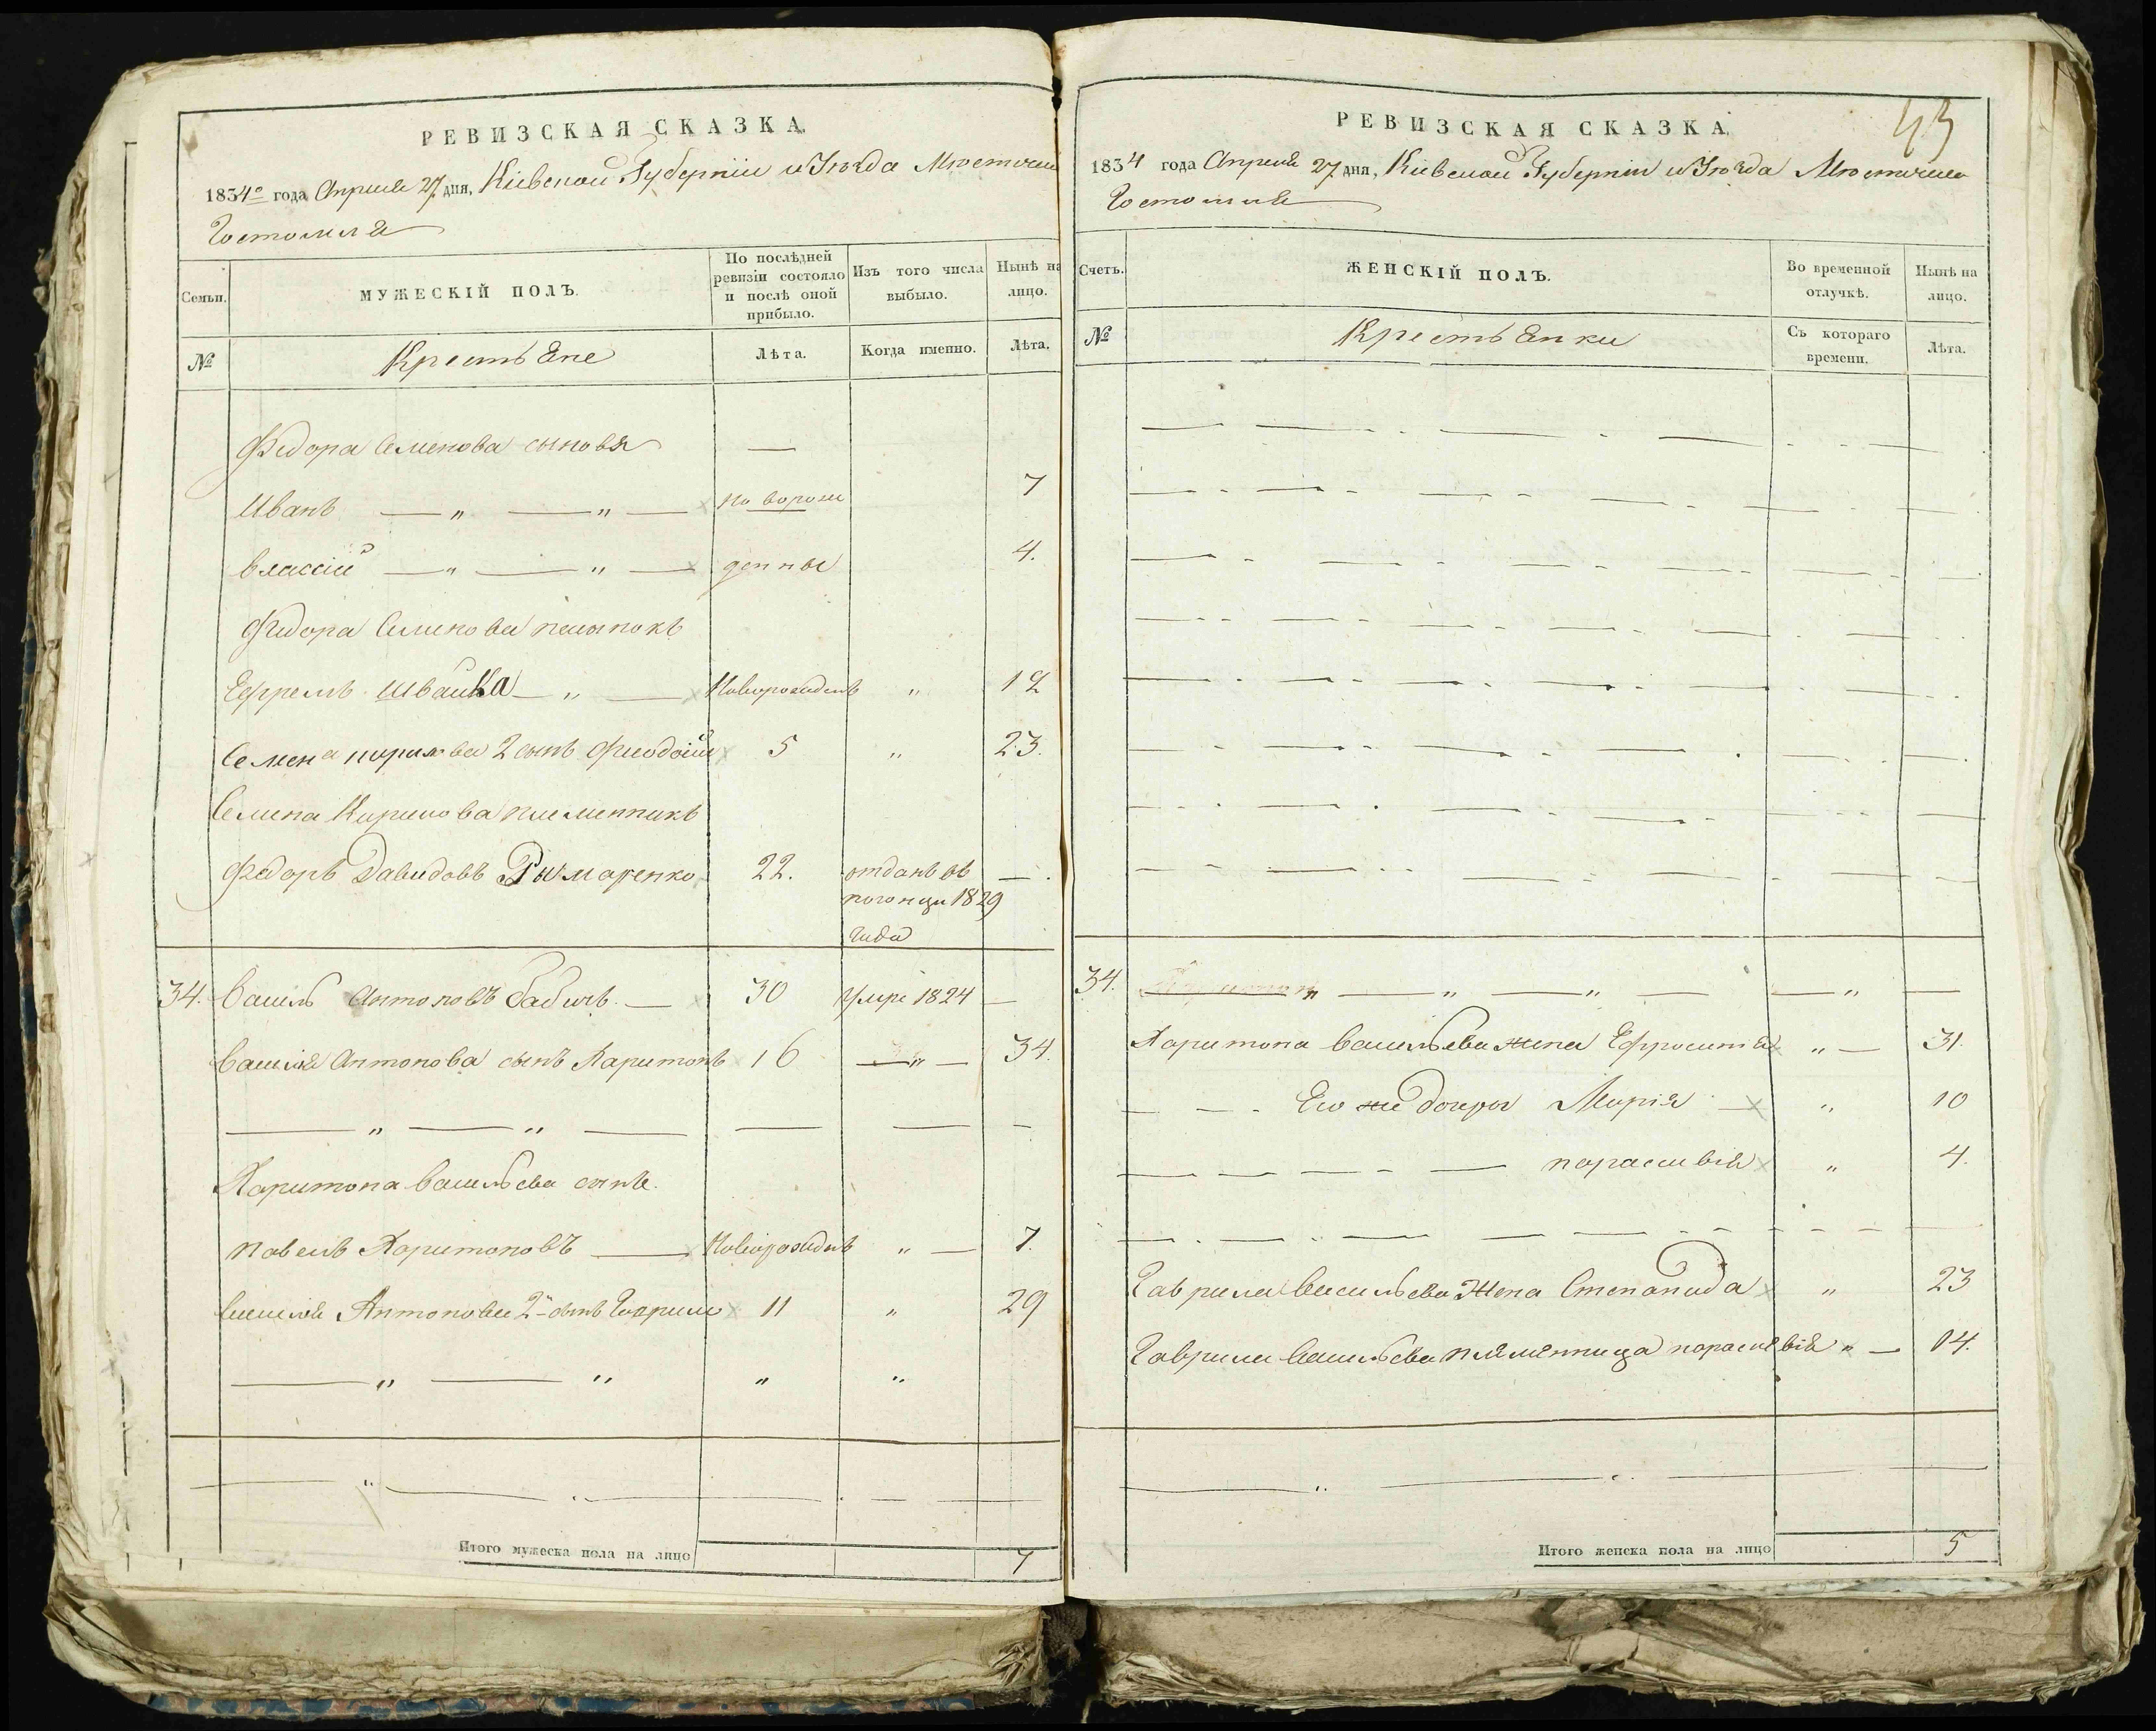 РЕВИЗСКАЯ СКАЗКА.
1834го года Апреля 27 дня, Кіевской Губерніи и Уѣзда Мѣстечка
Гостомля
Семьи.
МУЖЕСКІЙ ПОЛЪ.
По послѣдней ревизіи состояло и послѣ оной прибыло.
Изъ того числа выбыло.
Нынѣ на лицо.
№
Крестьяне
Лѣта.
Когда именно.
Лѣта.
Федора Семенова сыновя —
Иванъ — " — " — новорож 7
Влассій — " — " — денны 4.
Федора Семенова пасынокъ
Ефремъ Швайка — " — Новорожденъ " 12
Семена Кирилова 2 сынъ Феодосій 5 " 23.
Семена Кирилова племенникъ
Федоръ Давидовъ Рымаренко 22. отданъ въ —.
погонци 1829
года
34. Василь Антоновъ Бабичъ. — 30 Умре 1824 —
Василя Антонова сынъ Харитонъ 16 — " — 34.
— " — " — — — —
Харитона Васильева сынъ.
Павелъ Харитоновъ — Новорожденъ " — 7.
Василя Антонова 2й сынъ Гаврило 11 " 29
— " — " " "
Итого мужеска пола на лицо 7
43
РЕВИЗСКАЯ СКАЗКА.
1834 года Апреля 27 дня, Кіевской Губерніи и Уѣзда Мѣстечка
Гостомля
Счетъ.
ЖЕНСКІЙ ПОЛЪ.
Во временной отлучкѣ.
Нынѣ на лицо.
№
Крестьянки
Съ котораго времени.
Лѣта.
34. — " — " — " — — " —
Харитона Васильева жена Ефросинія " — 31.
— — - Его же дочеры Марія — " 10
— — — - — Парасквія " 4.
Гаврила Васильева Жена Степанида " 23
Гаврила Васильева племянница Парасквія " — 14.
Итого женска пола на лицо 5